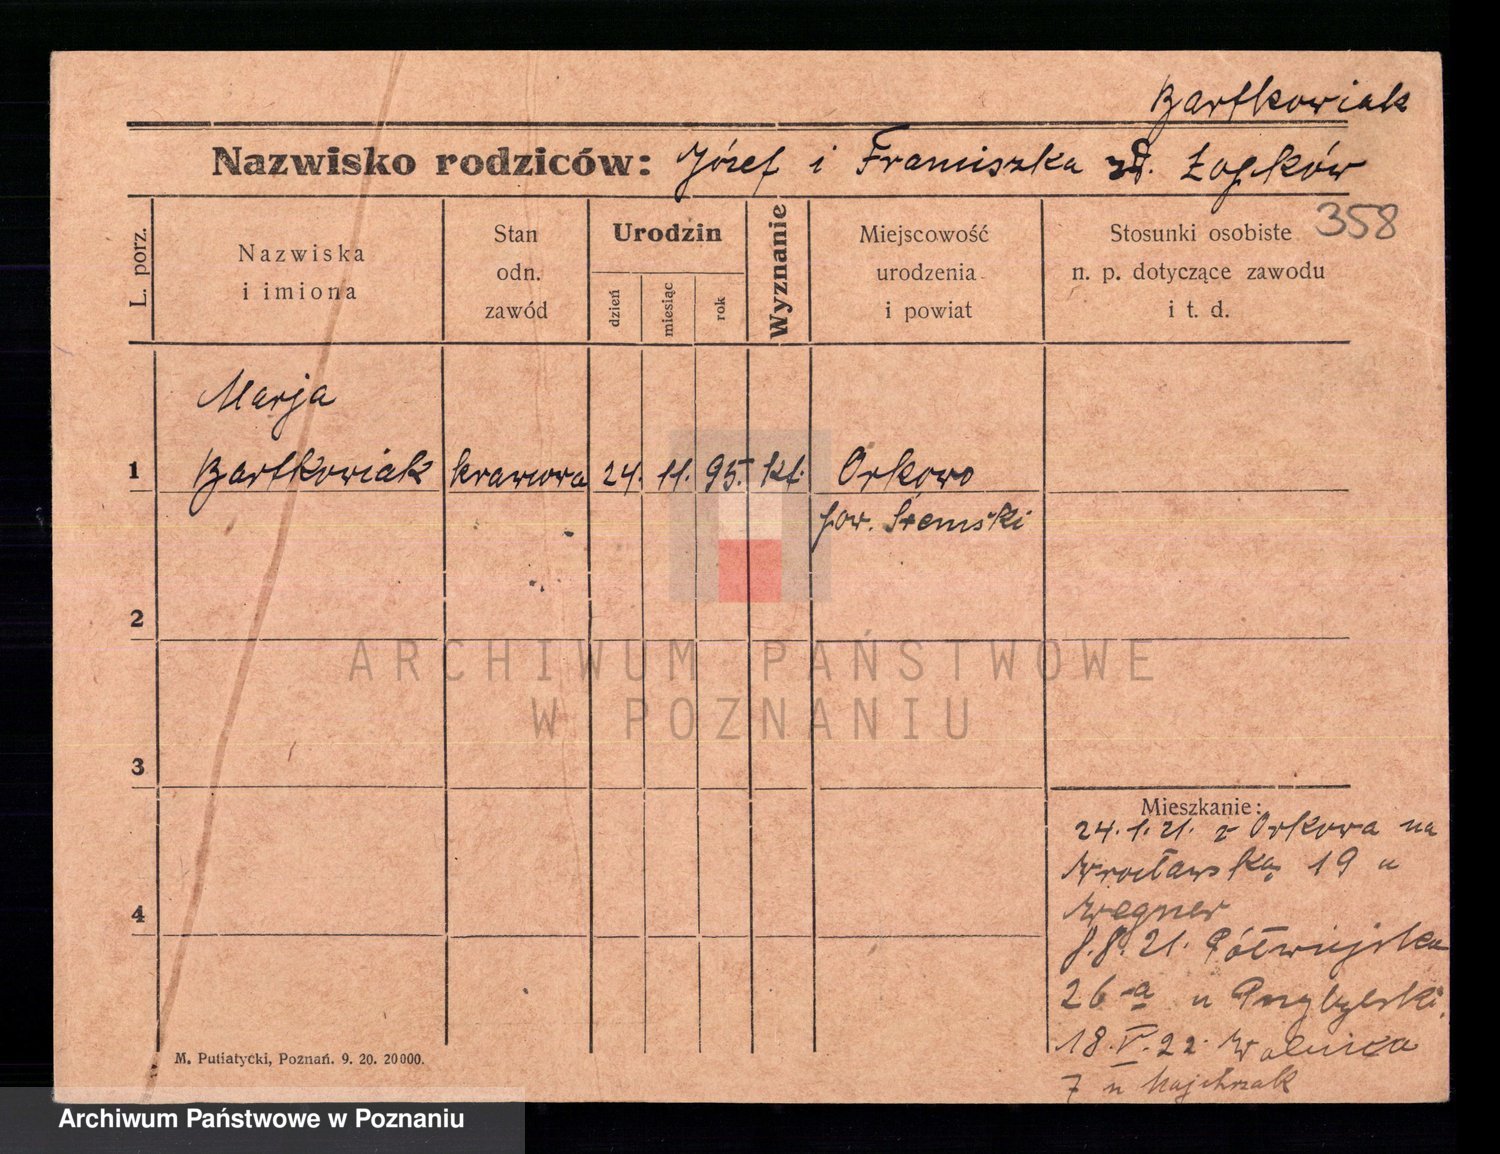 Bartkowiak
Nazwisko rodziców: Józef i Franciszka zd. Łopków
358
L. porz.
Nazwiska
i imiona
Stan
odn.
zawód
Urodzin
dzień
miesiąc
rok
Wyznanie
Miejscowość
urodzenia
i powiat
Stosunki osobiste
n. p. dotyczące zawodu
i t. d.
Marja
1 Bartkowiak krawcowa 24. 11. 95. kt. Orkowo
pow. Śremski
2
ARCHIWUM PAŃSTWOWE
W POZNANIU
3
Mieszkanie:
24.1.21. z Orkowa na
Wrocławską 19 u
Wegner
8.8.21. Półwiejska
26-a u Przybylski.
18.V.22. Wolnica
7 u Majchrzak
4
M. Putiatycki, Poznań. 9. 20. 20000.
Archiwum Państwowe w Poznaniu